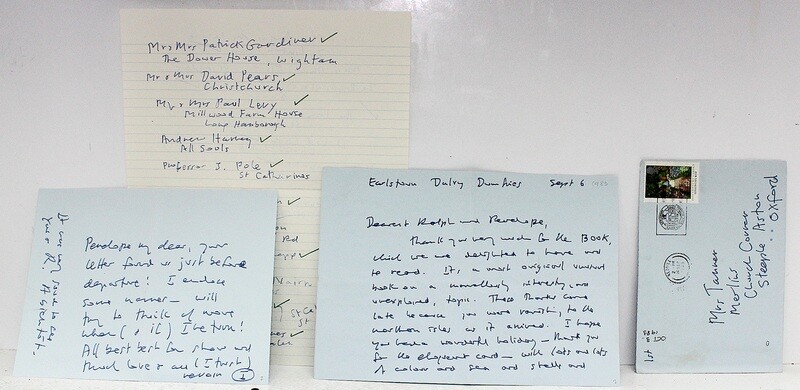 Mr & Mrs Patrick Gardiner ✓
The Dower House, Wightam
Mr & Mrs David Pears, ✓
Christchurch
Mr & Mrs Paul Levy ✓
Millwood Farm House
Long Hanborough
Andrew Harvey ✓
All Souls
Professor J. Pole ✓
St Catharines
Rd
Nairn
St Cat
St
Penelope my dear, your
letter found us just before
departure! I enclose
some names — will
try to think of more
when (& if) I return!
All best best for show and
much love & au (I trust)
revoir
Earlstoun Dalry Dumfries Sept 6
Dearest Ralph and Penelope,
Thank you very much for the BOOK,
which we are delighted to have and
to read. It's a most original unusual
book on a marvellously interesting, and
unexplained, topic. These thanks come
late because you were vanishing to the
northern isles as it arrived. I hope
you had a wonderful holiday — thank you
for the eloquent card — with lots and lots
of colour and sea and shells and
Mrs Tanner
Merlins
Church Corner
Steeple Aston
Oxford
1st
OCT 3
1983